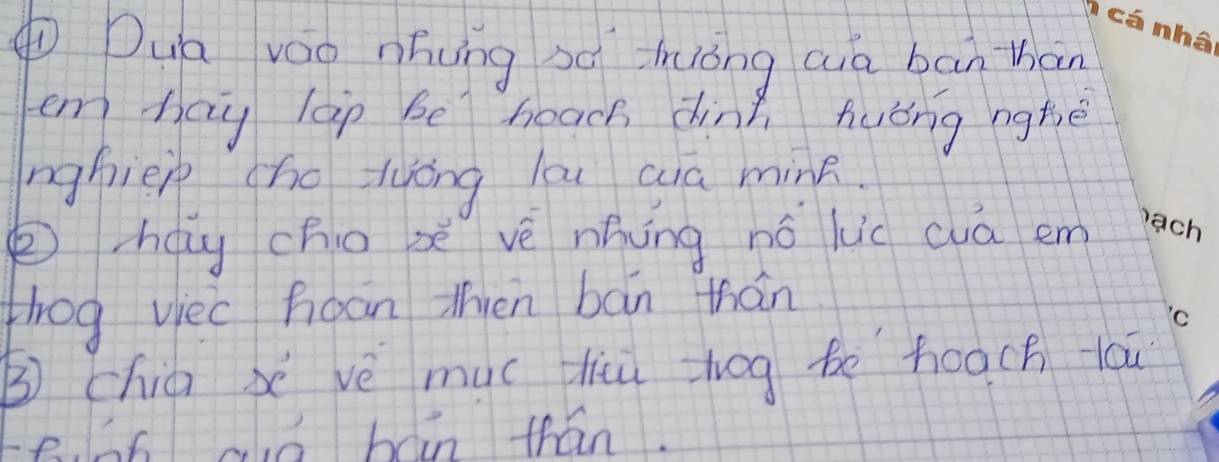 ① Dựa vào những sở trường của bản thân
em hãy lập kế hoạch định hướng nghề
nghiệp cho tương lai của mình.
② hãy chia sẻ về những nỗ lực của em
trog việc hoàn thiện bản thân
③ chia sẻ về mục tiêu trog kế hoạch tài
chính của bản thân.
cá nhâ
ạch